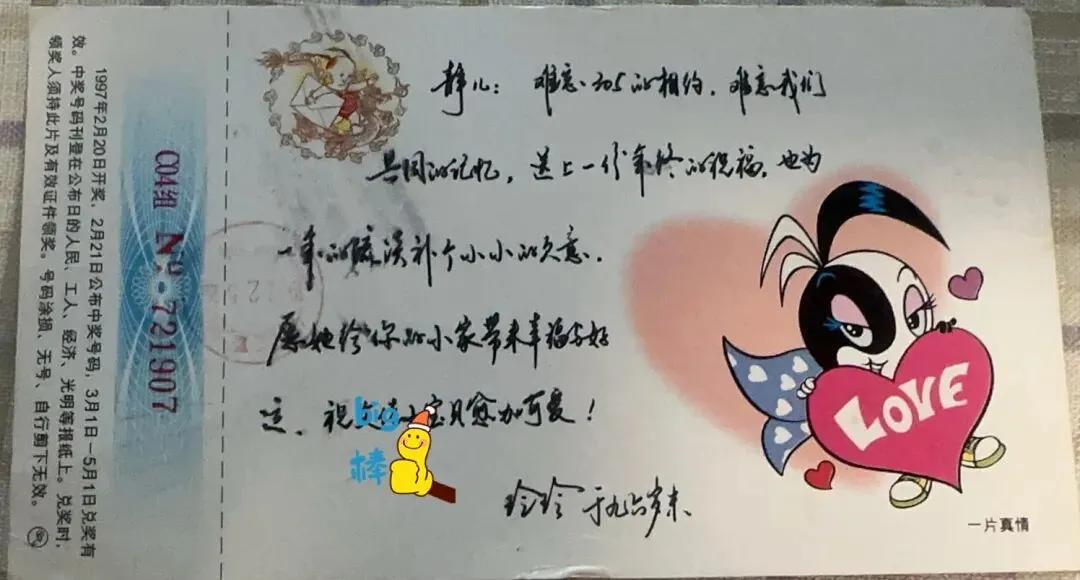 1997年2月20日开奖，2月21日公布中奖号码，3月1日—5月1日兑奖有
效。中奖号码刊登在公布日的人民、工人、经济、光明等报纸上。兑奖时，
领奖人须持此片及有效证件领奖。号码涂损、无号、自行剪下无效。
C04组 № 721907
静儿：难忘 的相约，难忘我们
共同的记忆，送上一份年终的祝福，也为
一年的疏淡补个小小的欠意．
愿她给你的小家带来幸福与好
运、祝 宝贝愈加可爱！
big
棒
玲玲 于九六岁末
LOVE
一片真情